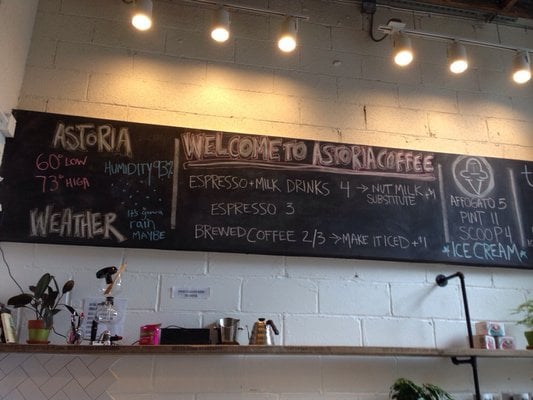 ASTORIA
60° LOW
73° HIGH
HUMIDITY 93%
WEATHER
It's gonna
rain
MAYBE
WELCOME TO ASTORIA COFFEE
ESPRESSO + MILK DRINKS 4 → NUT MILK +1
SUBSTITUTE
ESPRESSO 3
BREWED COFFEE 2/3 → MAKE IT ICED +1
AFFOGATO 5
PINT 11
SCOOP 4
*ICE CREAM*